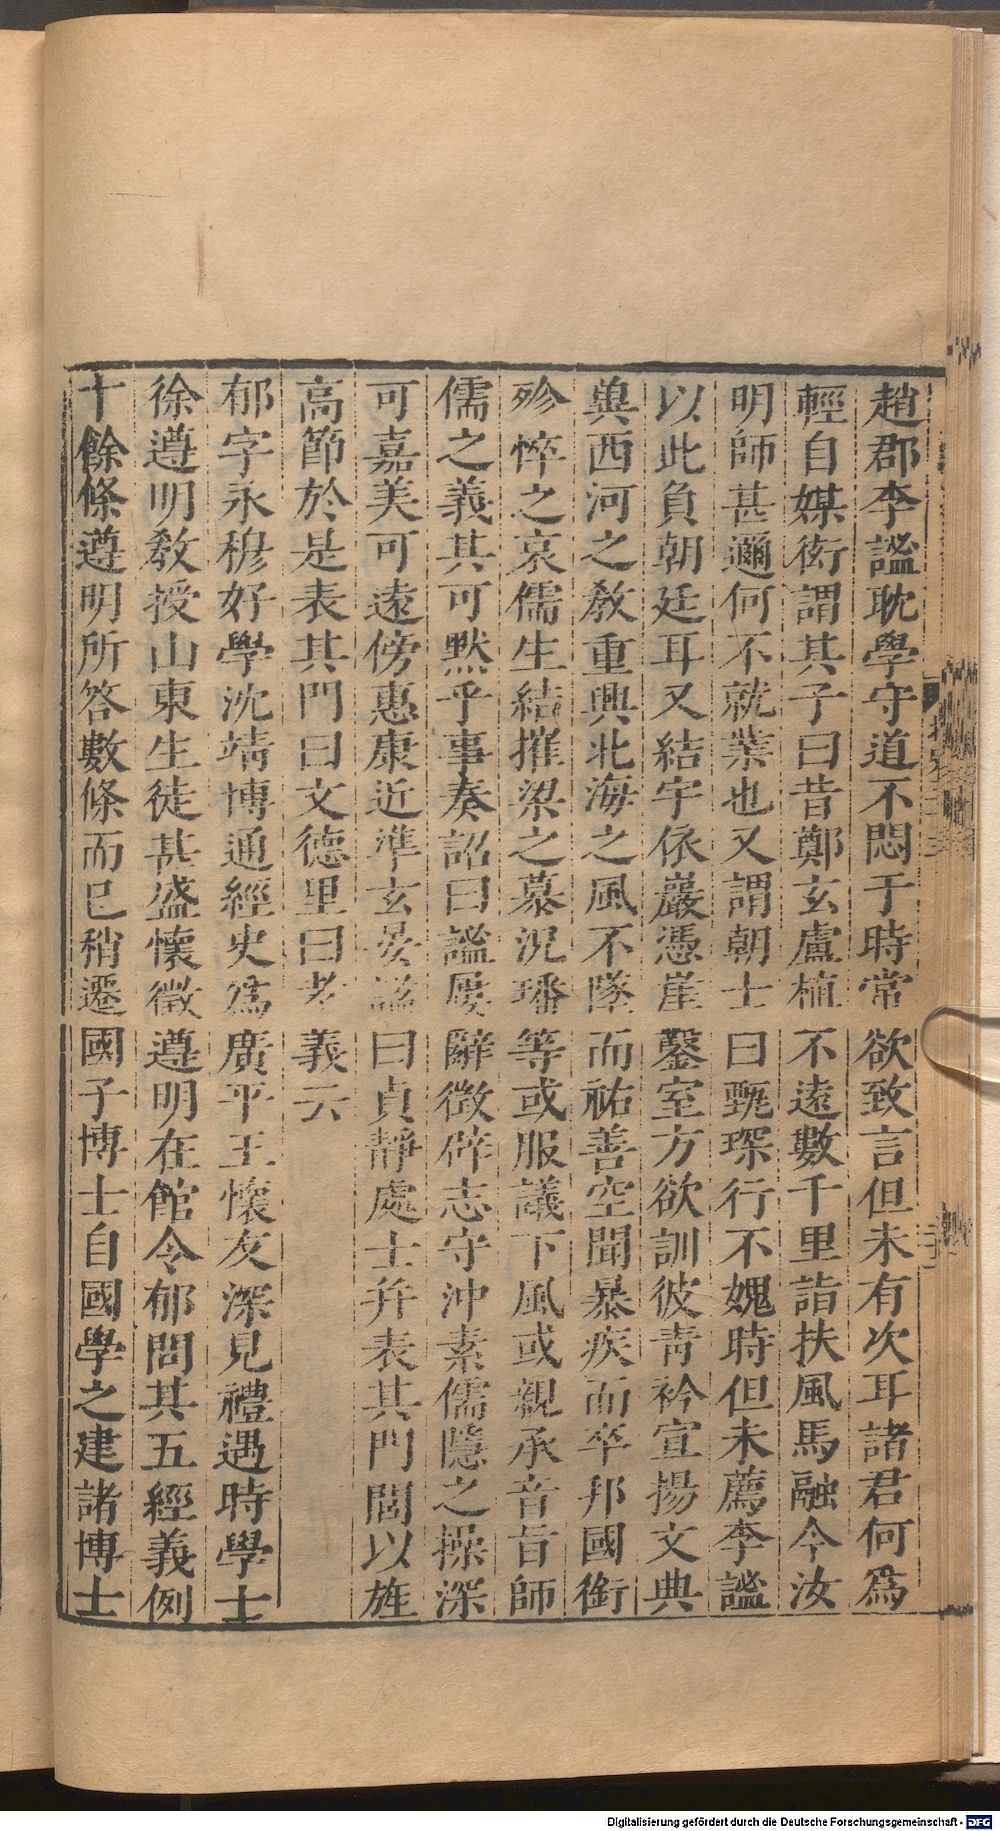 趙郡李謐耽學守道不悶于時常欲致言但未有次耳諸君何爲
輕自媒衒謂其子曰昔鄭玄盧植不遠數千里詣扶風馬融今汝
明師甚邇何不就業也又謂朝士曰甄琛行不媿時但未薦李謐
以此負朝廷耳又結宇依巖憑崖鑿室方欲訓彼靑衿宣揚文典
兾西河之敎重興北海之風不墜而祐善空聞暴疾而卒邦國銜
殄悴之哀儒生結摧梁之慕況璠等或服議下風或親承音旨師
儒之義其可默乎事奏詔曰謐屢辭徵辟志守沖素儒隱之操深
可嘉美可遠傍惠康近準玄晏謚曰貞靜處士并表其門閭以旌
高節於是表其門曰文德里曰孝義云
郁字永穆好學沈靖博通經史爲廣平王懷友深見禮遇時學士
徐遵明敎授山東生徒甚盛懷徵遵明在館令郁問其五經義例
十餘條遵明所答數條而已稍遷國子博士自國學之建諸博士
Digitalisierung gefördert durch die Deutsche Forschungsgemeinschaft - DFG